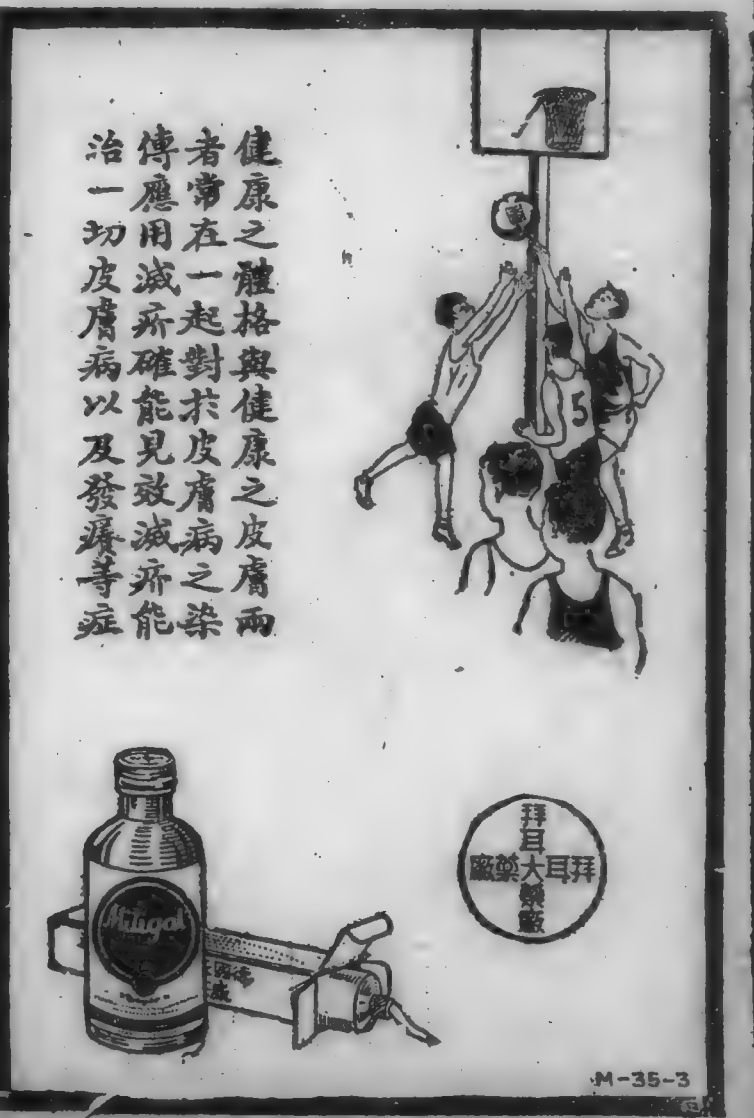 健康之體格與健康之皮膚兩
者常在一起對於皮膚病之染
傳應用滅疥確能見效滅疥能
治一切皮膚病以及發癢等症
5
拜耳大藥廠
拜耳大藥廠
Mitigal
M-35-3